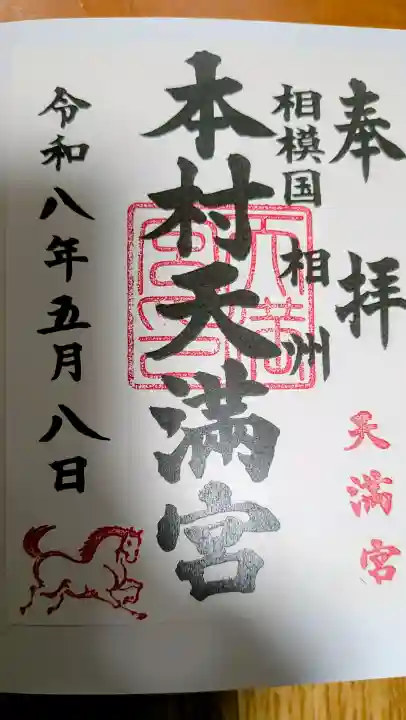 奉拝
天満宮
相模国
相州
本村天満宮
天満宮印
令和八年五月八日